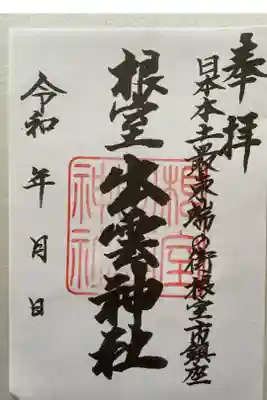 奉拝
日本本土最東端の街根室市鎮座
根室出雲神社
令和 年 月 日
根室
神社